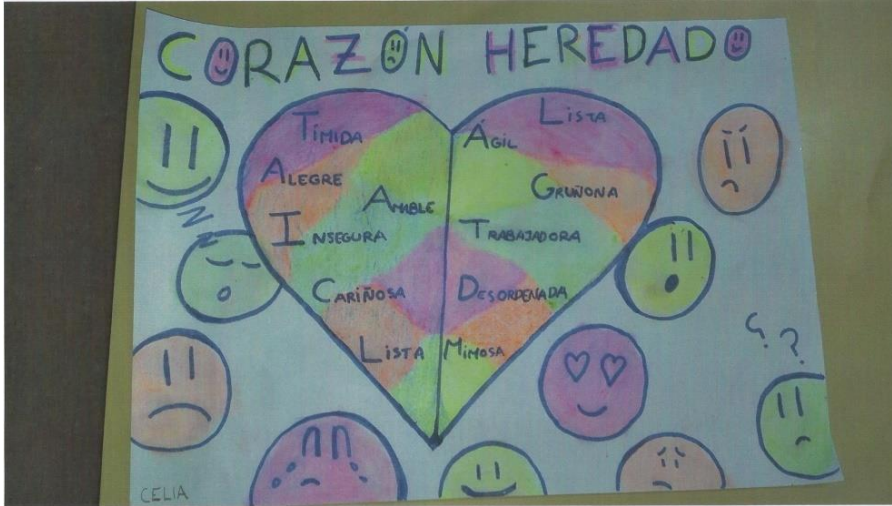 CORAZÓN HEREDADO
TÍMIDA
ALEGRE
AMABLE
INSEGURA
CARIÑOSA
LISTA
LISTA
ÁGIL
GRUÑONA
TRABAJADORA
DESORDENADA
MIMOSA
ZZ
¿?
CELIA